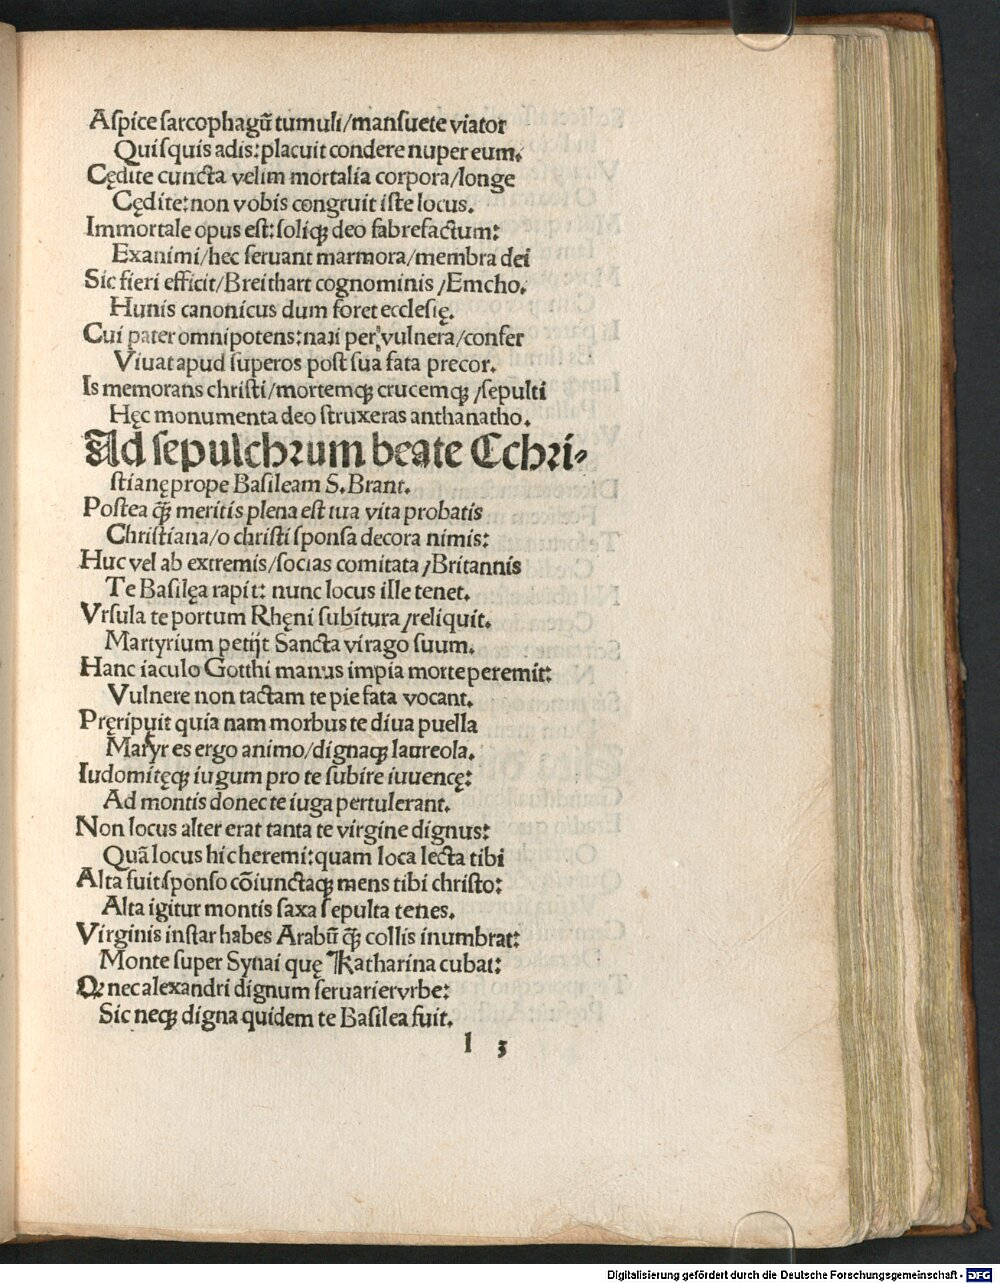 Aſpice ſarcophagū tumuli/manſuete viator
Quiſquis adis: placuit condere nuper eum.
Cędite cuncta velim mortalia corpora/longe
Cędite: non vobis congruit iſte locus.
Immortale opus eſt: ſoliqꝫ deo fabrefactum:
Exanimi/hec ſeruant marmora/membra dei
Sic fieri efficit/Breithart cognominis/Emcho.
Hunis canonicus dum foret ecclesię.
Cui pater omnipotens: nati per vulnera/confer
Viuat apud ſuperos poſt ſua fata precor.
Is memorans chriſti/mortemqꝫ crucemqꝫ/ſepulti
Hęc monumenta deo ſtruxeras anthanatho.
Ad ſepulchꝛum beate Cchꝛi⸗
ſtianę prope Baſileam S. Brant.
Poſtea qꝫ̄ meritis plena eſt tua vita probatis
Chriſtiana/o chriſti ſponſa decora nimis:
Huc vel ab extremis/ſocias comitata/Britannis
Te Baſilęa rapit: nunc locus ille tenet.
Vrſula te portum Rhęni ſubitura/reliquit.
Martyrium petijt Sancta virago ſuum.
Hanc iaculo Gotthi manus impia morte peremit:
Vulnere non tactam te pie fata vocant.
Pręripuit quia nam morbus te diua puella
Matyr es ergo animo/dignaqꝫ laureola.
Iudomitęqꝫ iugum pro te ſubire iuuencę:
Ad montis donec te iuga pertulerant.
Non locus alter erat tanta te virgine dignus:
Quā locus hic heremi: quam loca lecta tibi
Alta fuit ſponſo cōiunctaqꝫ mens tibi chriſto:
Alta igitur montis ſaxa ſepulta tenes.
Virginis inſtar habes Arabū qꝫ̄ collis inumbrat:
Monte ſuper Synai quę Katharina cubat:
Qꝫ nec alexandri dignum ſeruarier vrbe:
Sic neqꝫ digna quidem te Baſilea fuit.
l 3
Digitalisierung gefördert durch die Deutsche Forschungsgemeinschaft - DFG